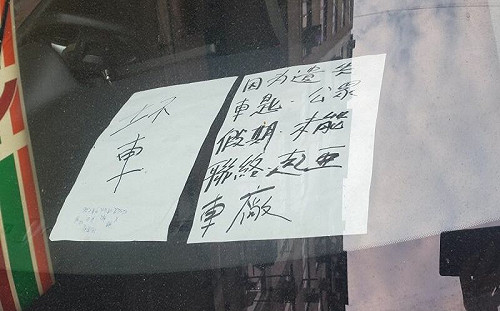 坏
車
因为遺失
車匙.公眾
假期.未能
聯絡.起亞
車廠